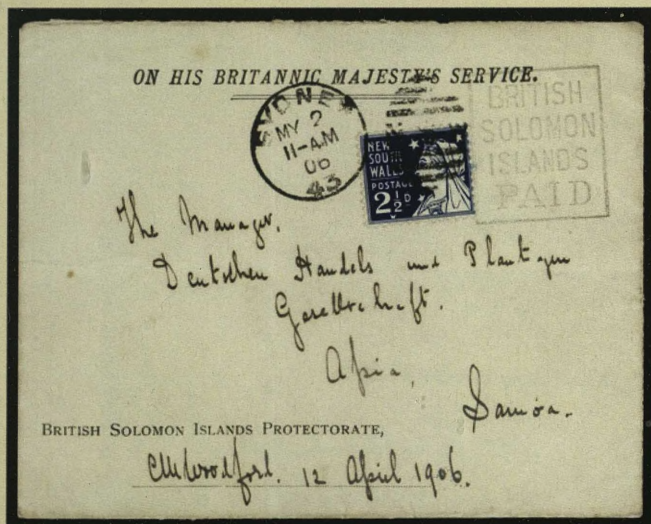 ON HIS BRITANNIC MAJESTY'S SERVICE.
SYDNEY
MY 2
11-AM
06
43
NEW
SOUTH
WALES
POSTAGE
2½D
BRITISH
SOLOMON
ISLANDS
PAID
The Manager.
Deutschen Handels und Plantagen
Gesellschaft.
Apia,
Samoa.
BRITISH SOLOMON ISLANDS PROTECTORATE,
CMWoodford. 12 April 1906.